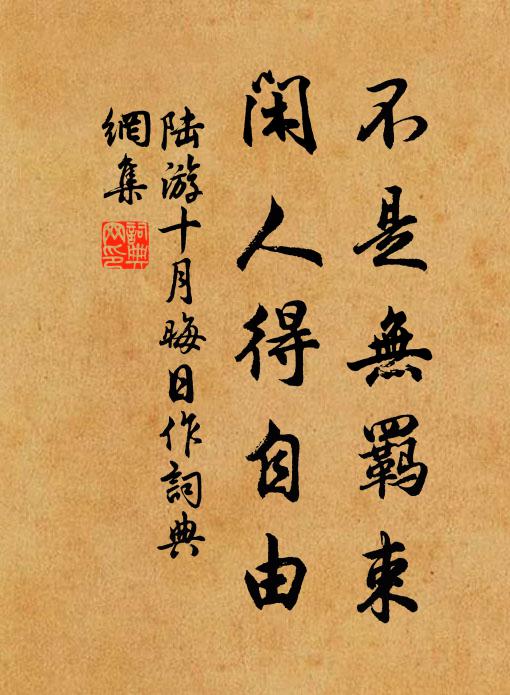 不是無羈束
閑人得自由
陸游十月晦日作詞典
網集
詞典
网印